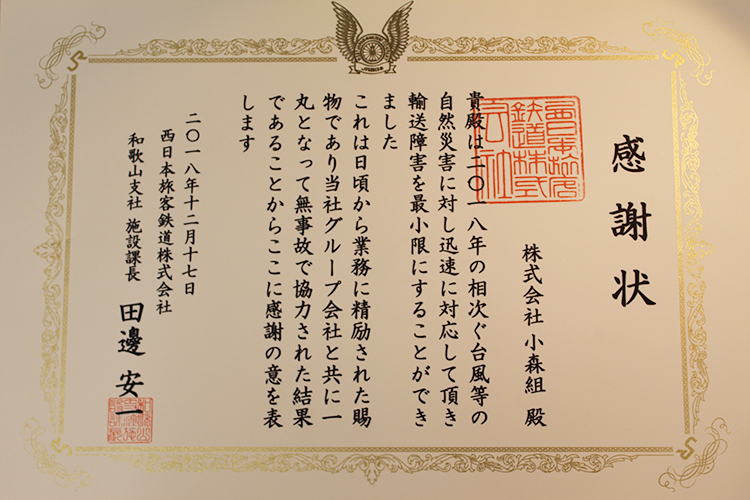 感謝状
株式会社 小森組 殿
貴殿は二〇一八年の相次ぐ台風等の
自然災害に対し迅速に対応して頂き
輸送障害を最小限にすることができ
ました
これは日頃から業務に精励された賜
物であり当社グループ会社と共に一
丸となって無事故で協力された結果
であることからここに感謝の意を表
します
二〇一八年十二月十七日
西日本旅客鉄道株式会社
和歌山支社 施設課長 田邊 安一